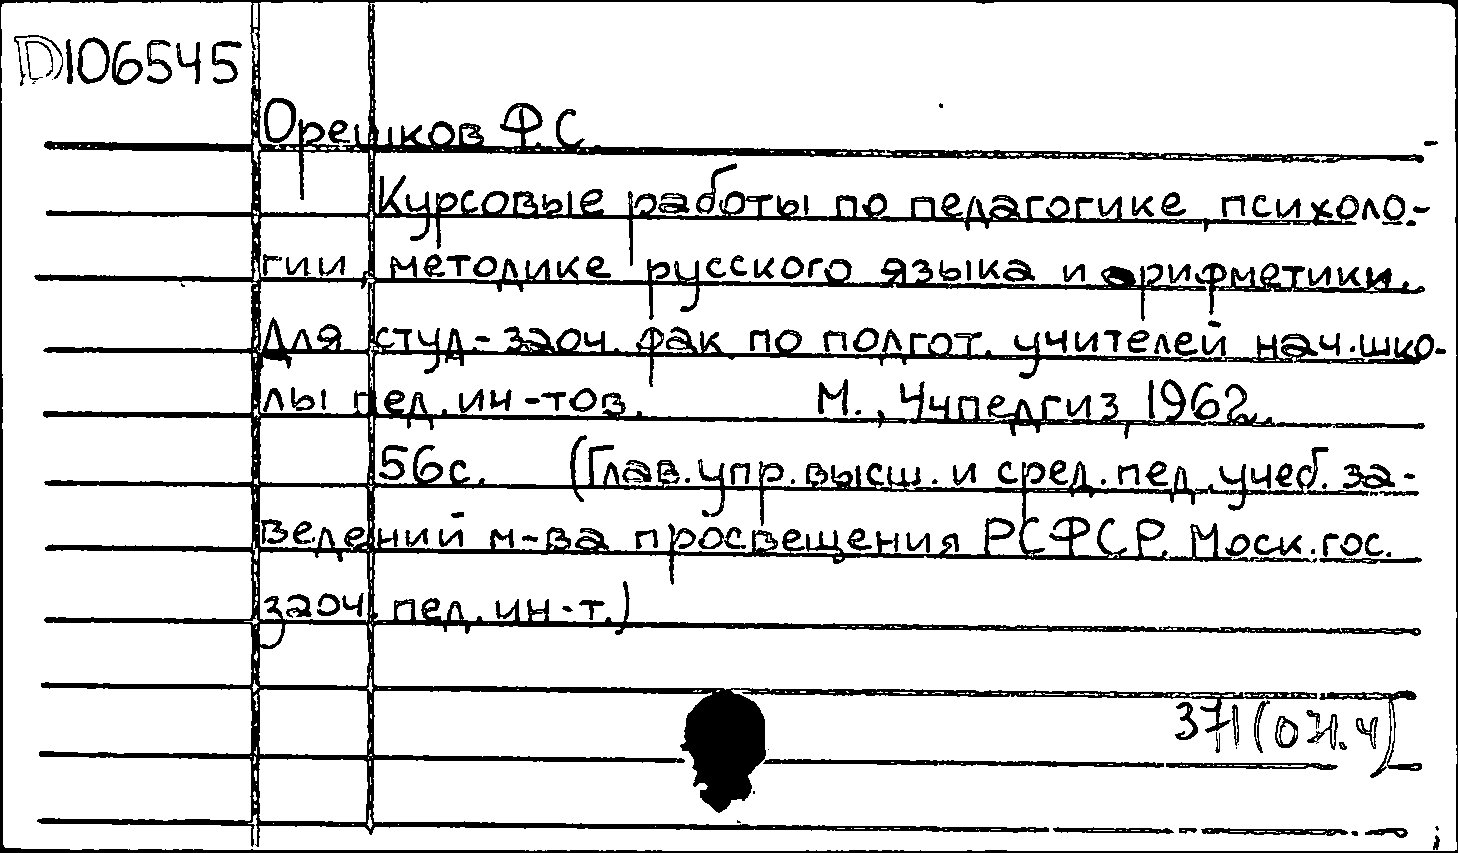 D106545
Орешков Ф.С.
Курсовые работы по педагогике, психоло-
гии, методике русского языка и арифметики.
Для студ.-заоч. фак. по подгот. учителей нач. шко-
лы пед. ин-тов. М., Учпедгиз, 1962.
56с. (Глав. упр. высш. и сред. пед. учеб. за-
ведений м-ва просвещения РСФСР. Моск. гос.
заоч. пед. ин-т.)
371(04.4)